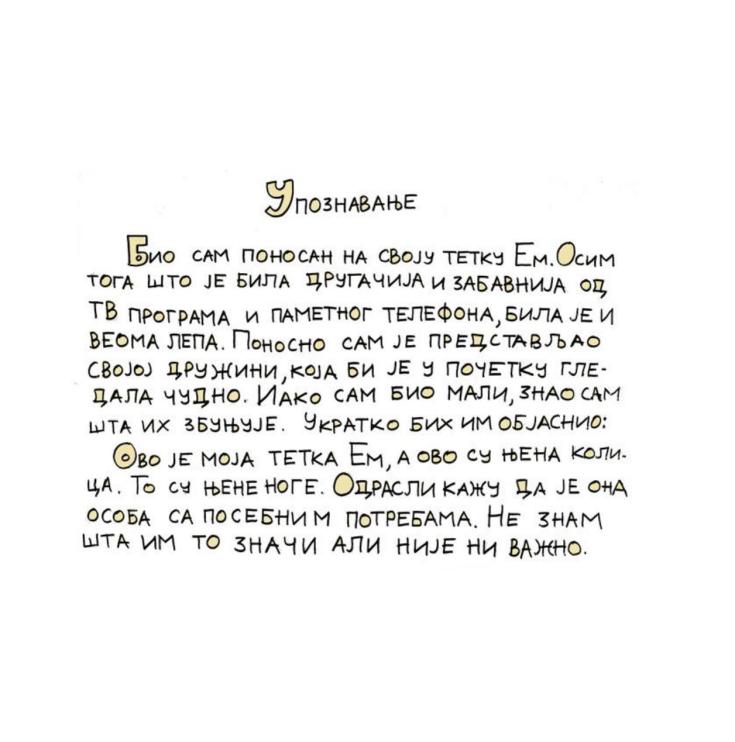 Упознавање
Био сам поносан на своју тетку Ем. Осим
тога што је била другачија и забавнија од
ТВ програма и паметног телефона, била је и
веома лепа. Поносно сам је представљао
својој дружини, која би је у почетку гле-
дала чудно. Иако сам био мали, знао сам
шта их збуњује. Укратко бих им објаснио:
Ово је моја тетка Ем, а ово су њена коли-
ца. То су њене ноге. Одрасли кажу да је она
особа са посебним потребама. Не знам
шта им то значи али није ни важно.